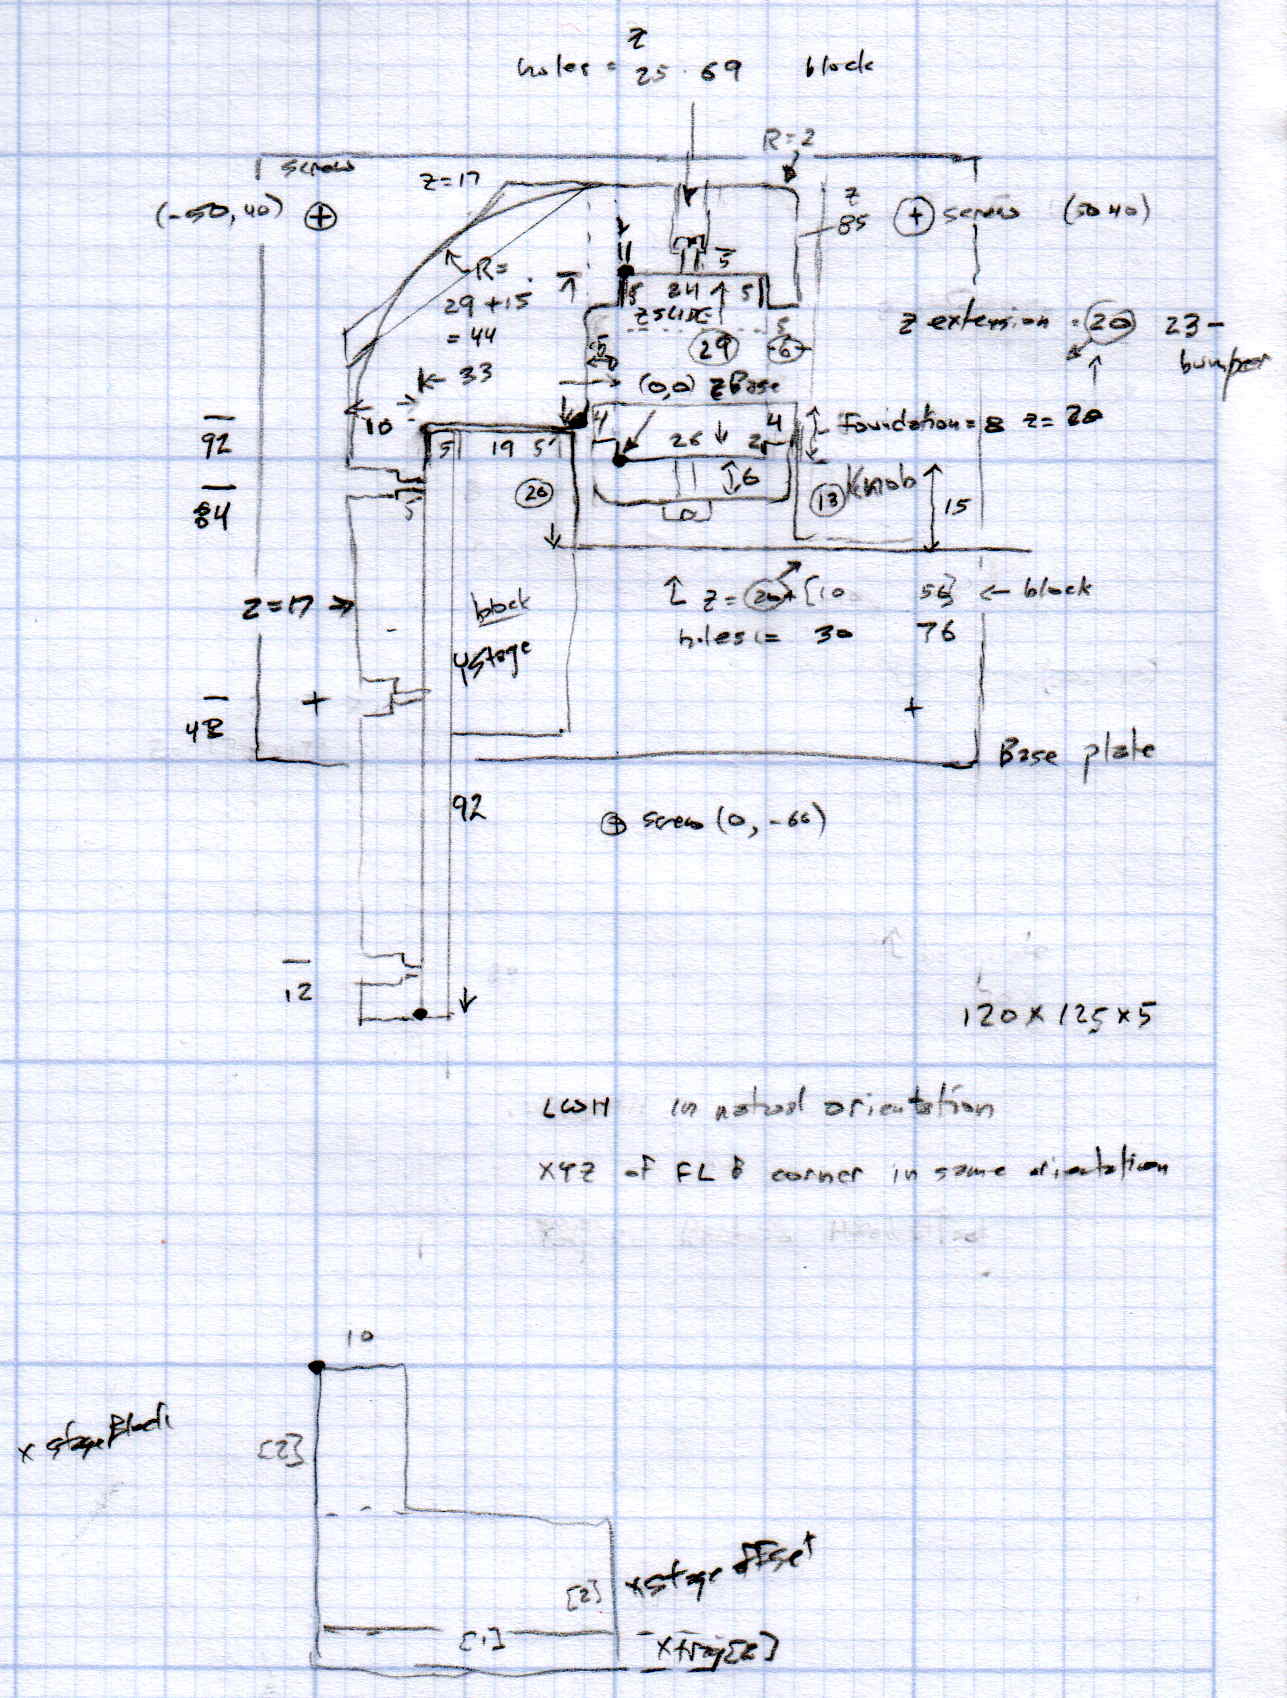 z
holes = 25 69 block
R=2
screw
z=17
(-50, 40)
z
85
screw (50 40)
R=
29+15
= 44
5
5 24 5
z slide
5
z extension = 20 23-
bumper
5
29
6
33
(0,0) zBase
10
92
4
4
Foundation = 8 z = 20
5 19 5
26 2
84
5
20
6
13 Knob
15
z = 20+[10 56] ← block
holes = 30 76
z=17 →
block
yStage
48
Base plate
92
screw (0, -66)
12
120 x 125 x 5
LWH in natural orientation
XYZ of FLB corner in same orientation
10
x stageBlock
[2]
[2] xstage offset
[1] xtray[2]